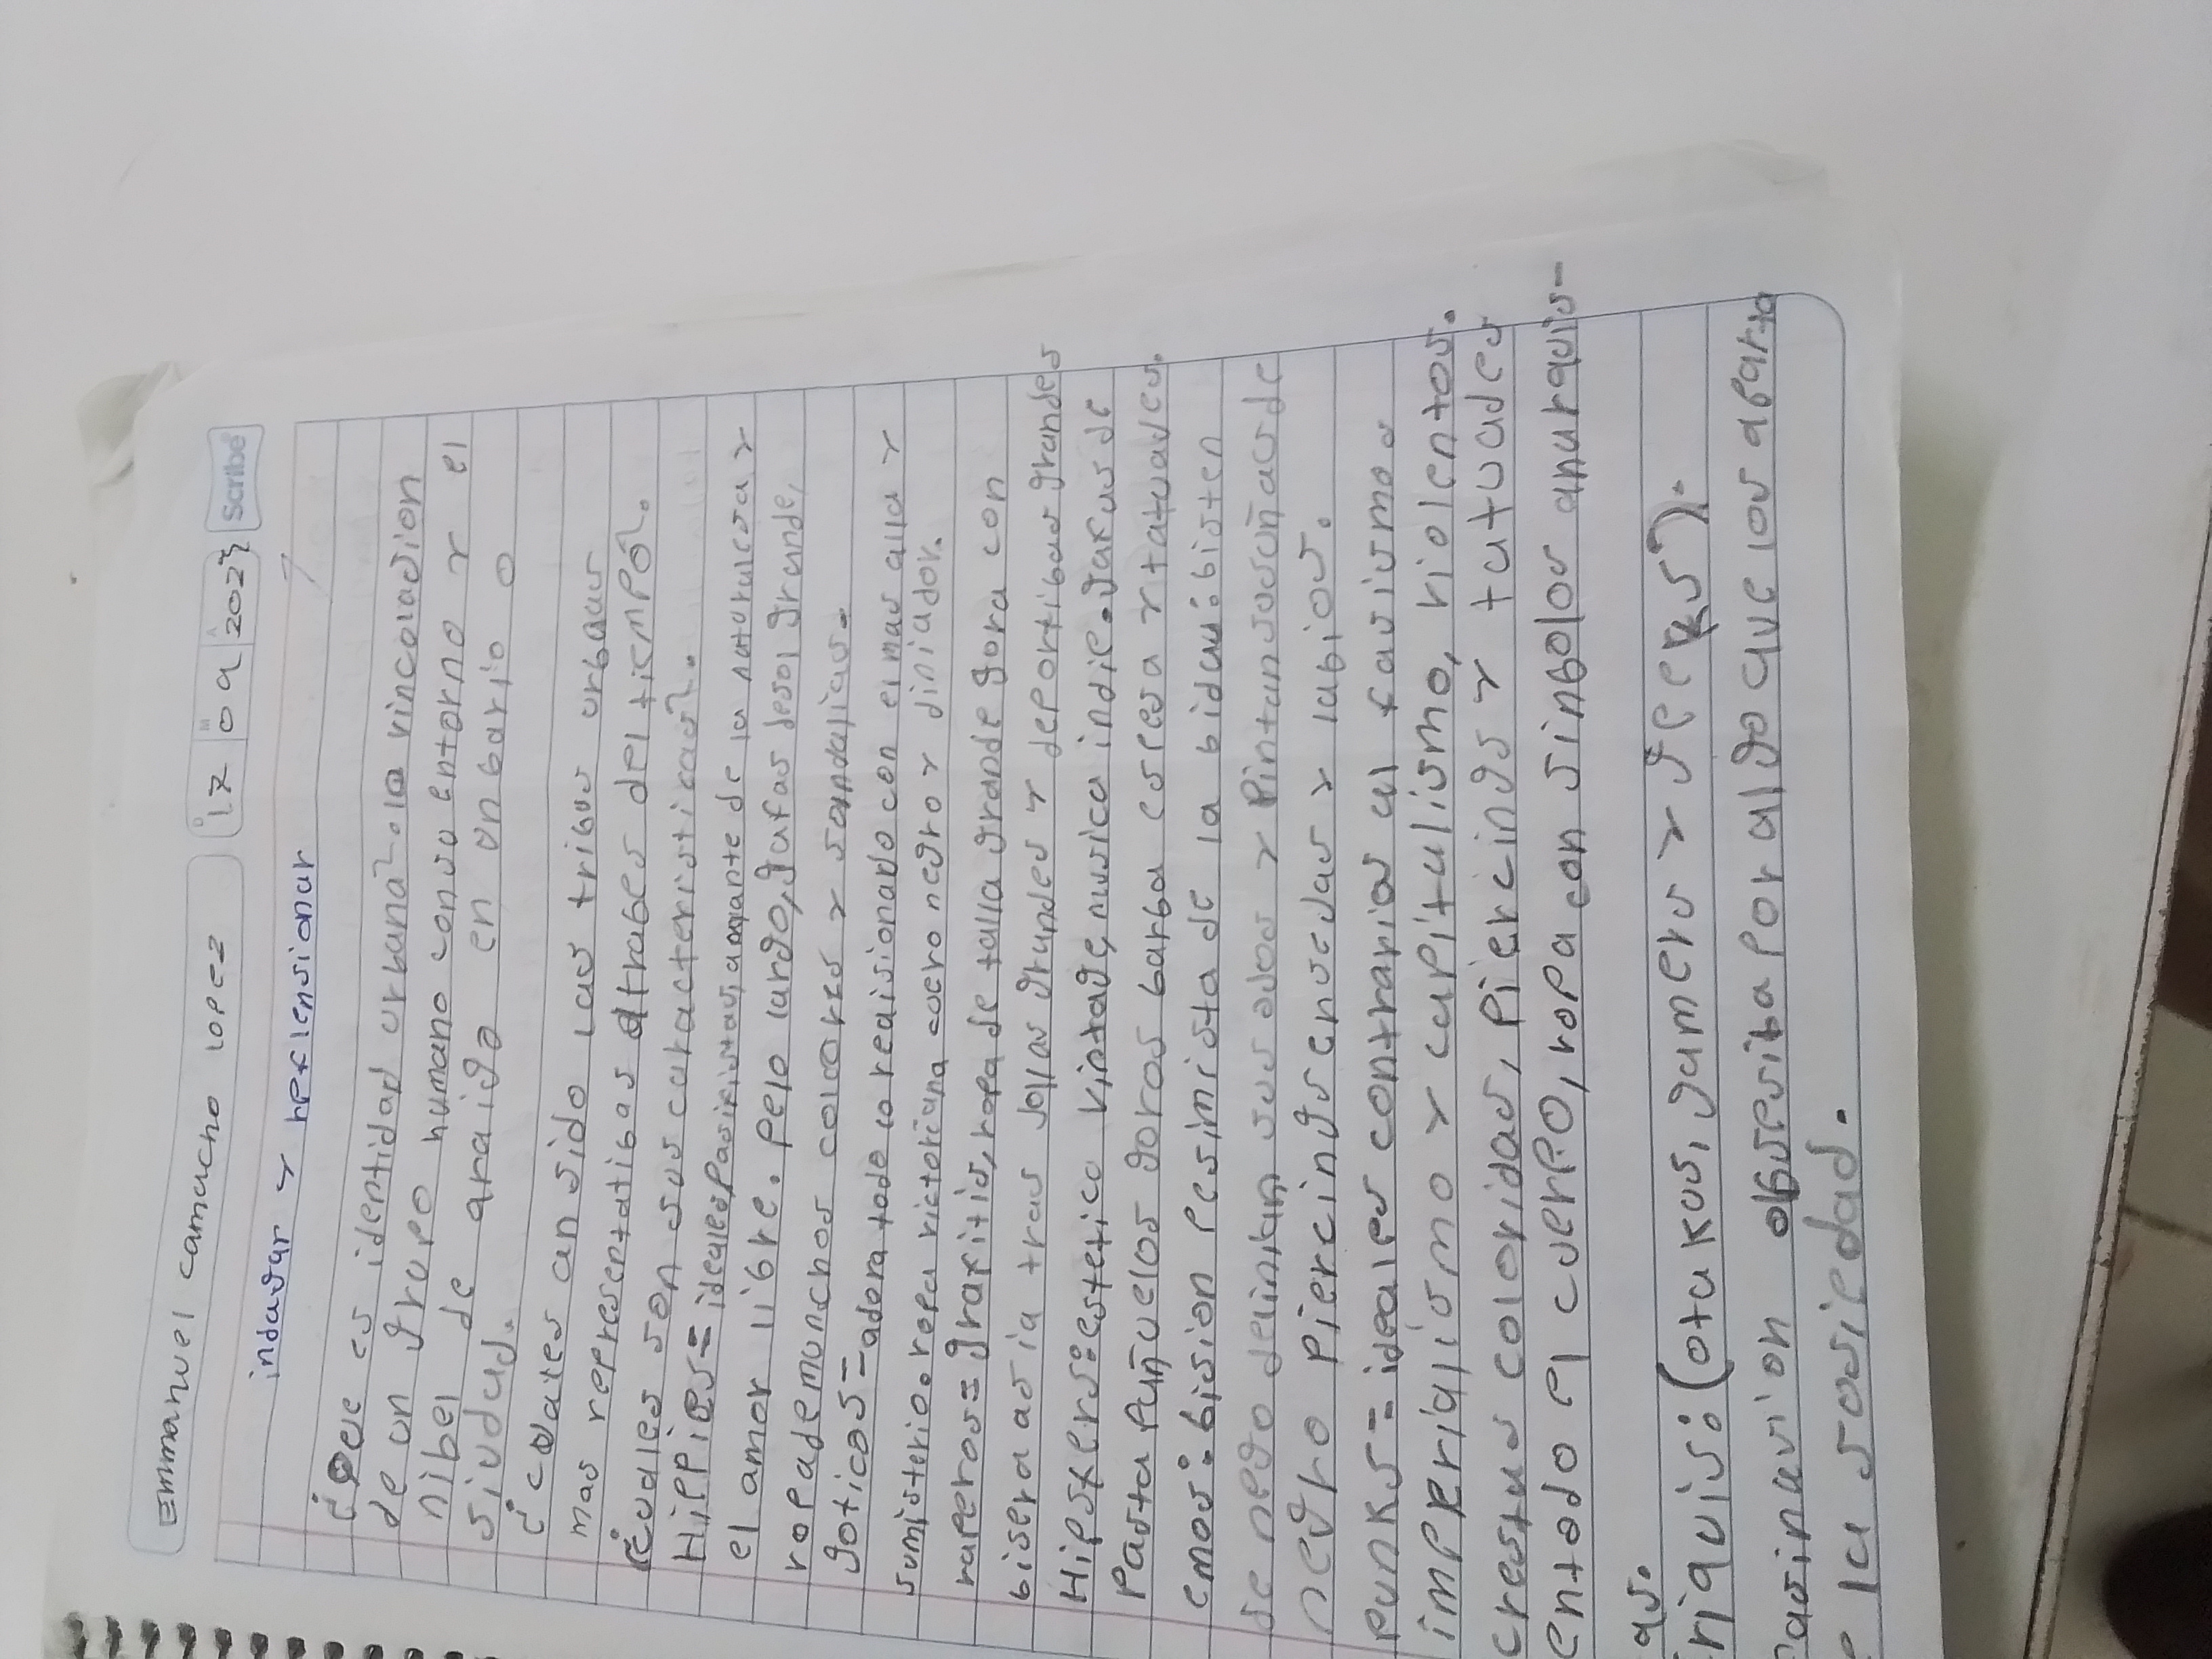 Emmanuel camacho lopez
D 17 M 09 A 2023 Scribe
indagar y reflexionar
¿Que es identidad urbana?. la vinculasion
de un grupo humano con su entorno y el
nibel de araigo en un bario o
siudad.
¿cuales an sido las tribus urbaas
mas representatibas atrabes del tiempo?.
¿cuales son sus caracteristicas?.
Hippies= ideales pasifistas, amante de la naturalesa y
el amor libre. pelo largo, gafas desol grande,
ropa de munchos colores y sandalias.
goticos= adora todo lo relaisionado con el mas alla y
sumisterio. ropa victoriana cuero negro y diniador.
raperos= graxitis, ropa de talla grande gora con
bisera asia tras jollas grandes y deportibas grandes
Hipsxers: estetica vintage, musica indie. gafas de
Pasta pañuelos goros barba espesa y tatuages.
emos: bision pesimista de la bidas: bisten
de nego delinian sus ojos y pintan sus uñas de
negro piercings en sejas y labios.
Punks= ideales contrarios al fasismo.
imperialismo y capitalismo, violentos.
crestas coloridas, piercings y tatuages
entodo el cuerpo, ropa con sinbolos anarquis-
as.
riquis: (otakus, gamers y geeks).
asinasion obsesiba por algo que los aparta
e la sosiedad.